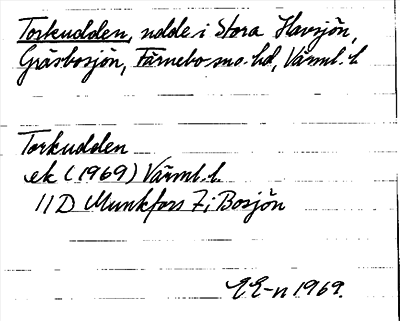 Torkudden, udde i Stora Havsjön,
Gräsbosjön, Färnebo sno. hd, Värml. l
Torkudden
ek (1969) Värml. l.
11D Munkfors 7i Bosjön
EE-n 1969.